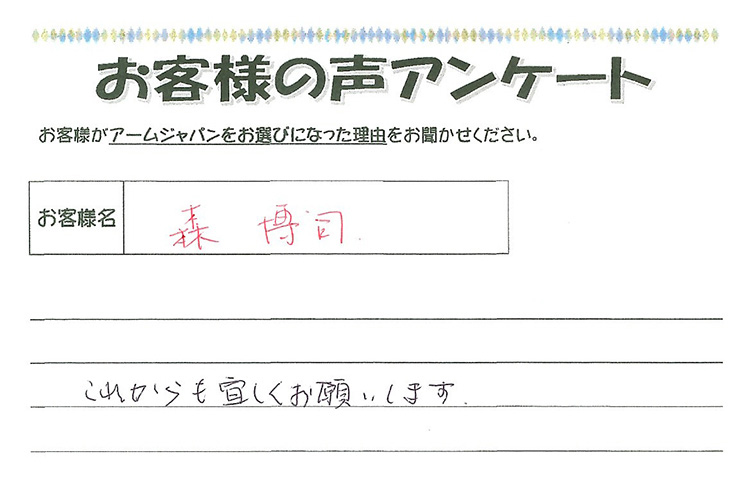 お客様の声アンケート
お客様がアームジャパンをお選びになった理由をお聞かせください。
お客様名 森 博司.
これからも宜しくお願いします.